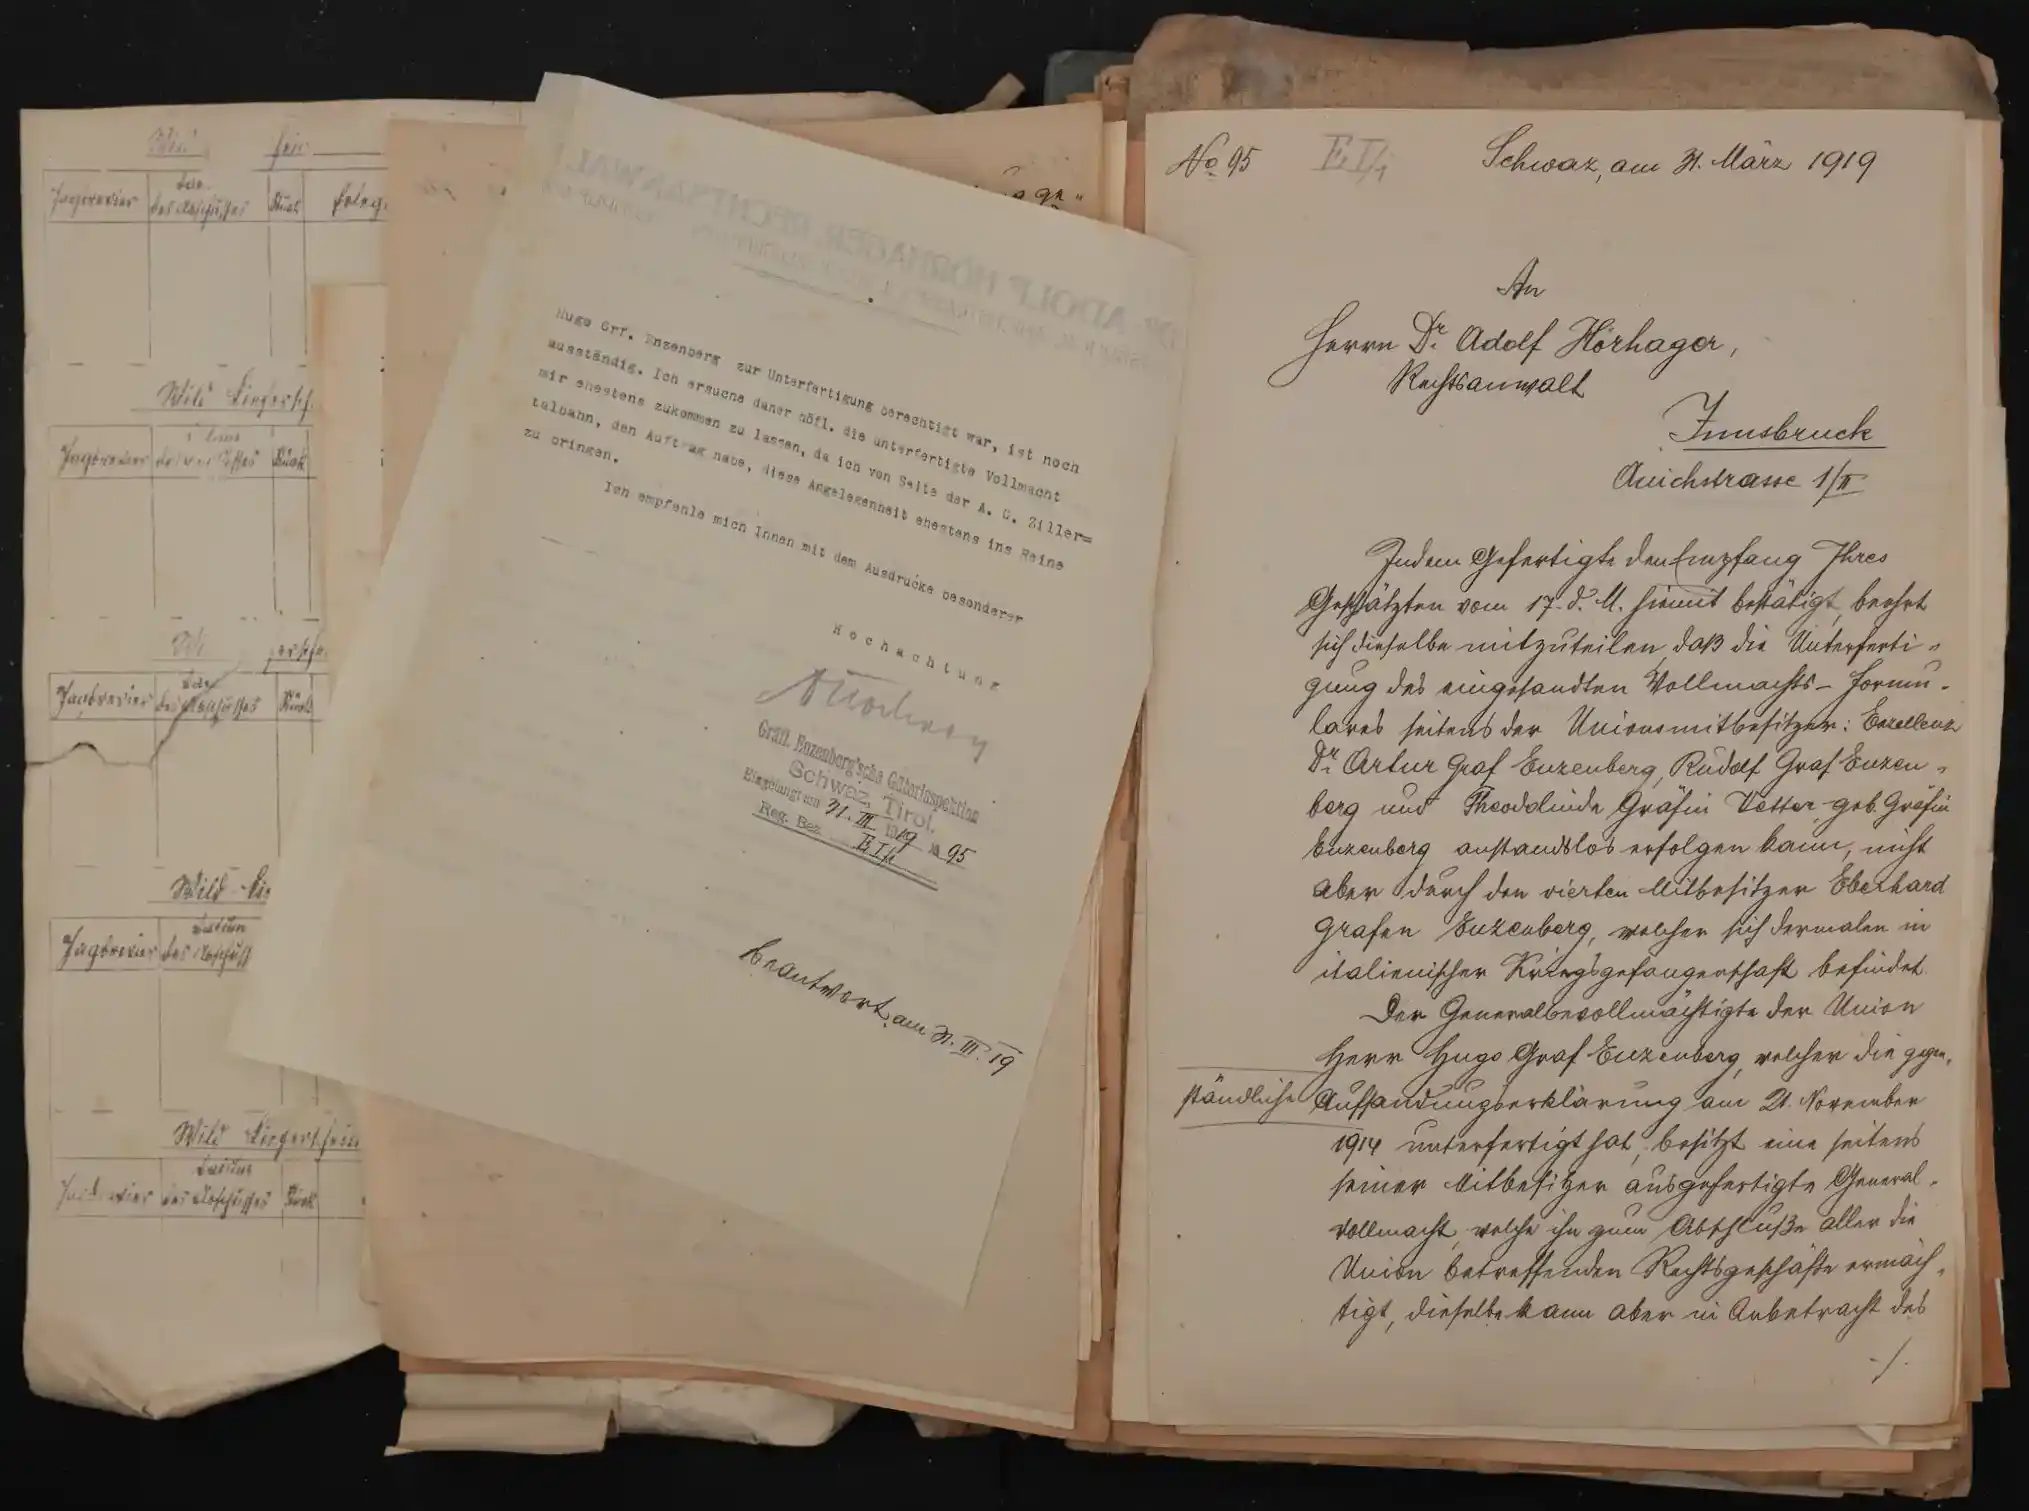 Jagdrevier
des Abschusses
Stück
Wild Liefersch.
Jagdrevier
Stück
Jagdrevier
des Abschusses
Stück
Wild-Lie
Jagdrevier
Datum
des Abschuss
Wild Lieferschein
Datum
des Abschusses
Stück
DR. ADOLF HÖRHAGER, RECHTSANWALT
Hugo Grf. Enzenberg zur Unterfertigung berechtigt war, ist noch
ausständig. Ich ersuche daher höfl. die unterfertigte Vollmacht
mir ehestens zukommen zu lassen, da ich von Seite der A. G. Ziller=
talbahn, den Auftrag habe, diese Angelegenheit ehestens ins Reine
zu bringen.
Ich empfehle mich Ihnen mit dem Ausdrucke besonderer
Hochachtung
Gräfl. Enzenberg'sche Güterinspektion
Schwaz, Tirol.
Eingelangt am 31. III 1919 № 95
Reg. Bez. E I/1
beantwort. am 31. III. 19
№ 95
E I/1
Schwaz, am 31. März 1919
An
Herrn Dr. Adolf Hörhager,
Rechtsanwalt
Innsbruck
Anichstrasse 1/II
Indem Gefertigte den Empfang Ihres
Geschätzten vom 17. d. M. hiemit bestätigt, beehrt
sich dieselbe mitzuteilen, daß die Unterferti-
gung des eingesandten Vollmachts-Formu-
lares seitens der Unionsmitbesitzer: Excellenz
Dr. Artur Graf Enzenberg, Rudolf Graf Enzen-
berg und Theodolinde Gräfin Vetter geb. Gräfin
Enzenberg anstandslos erfolgen kann, nicht
aber durch den vierten Mitbesitzer Eberhard
Grafen Enzenberg, welcher sich dermalen in
italienischer Kriegsgefangenschaft befindet.
Der Generalbevollmächtigte der Union
Herr Hugo Graf Enzenberg, welcher die gegen-
ständliche Aufsandungserklärung am 21. November
1914 unterfertigt hat, besitzt eine seitens
seiner Mitbesitzer ausgefertigte General-
vollmacht, welche ihn zum Abschluße aller die
Union betreffenden Rechtsgeschäfte ermäch-
tigt, dieselbe kann aber in Anbetracht des
./.